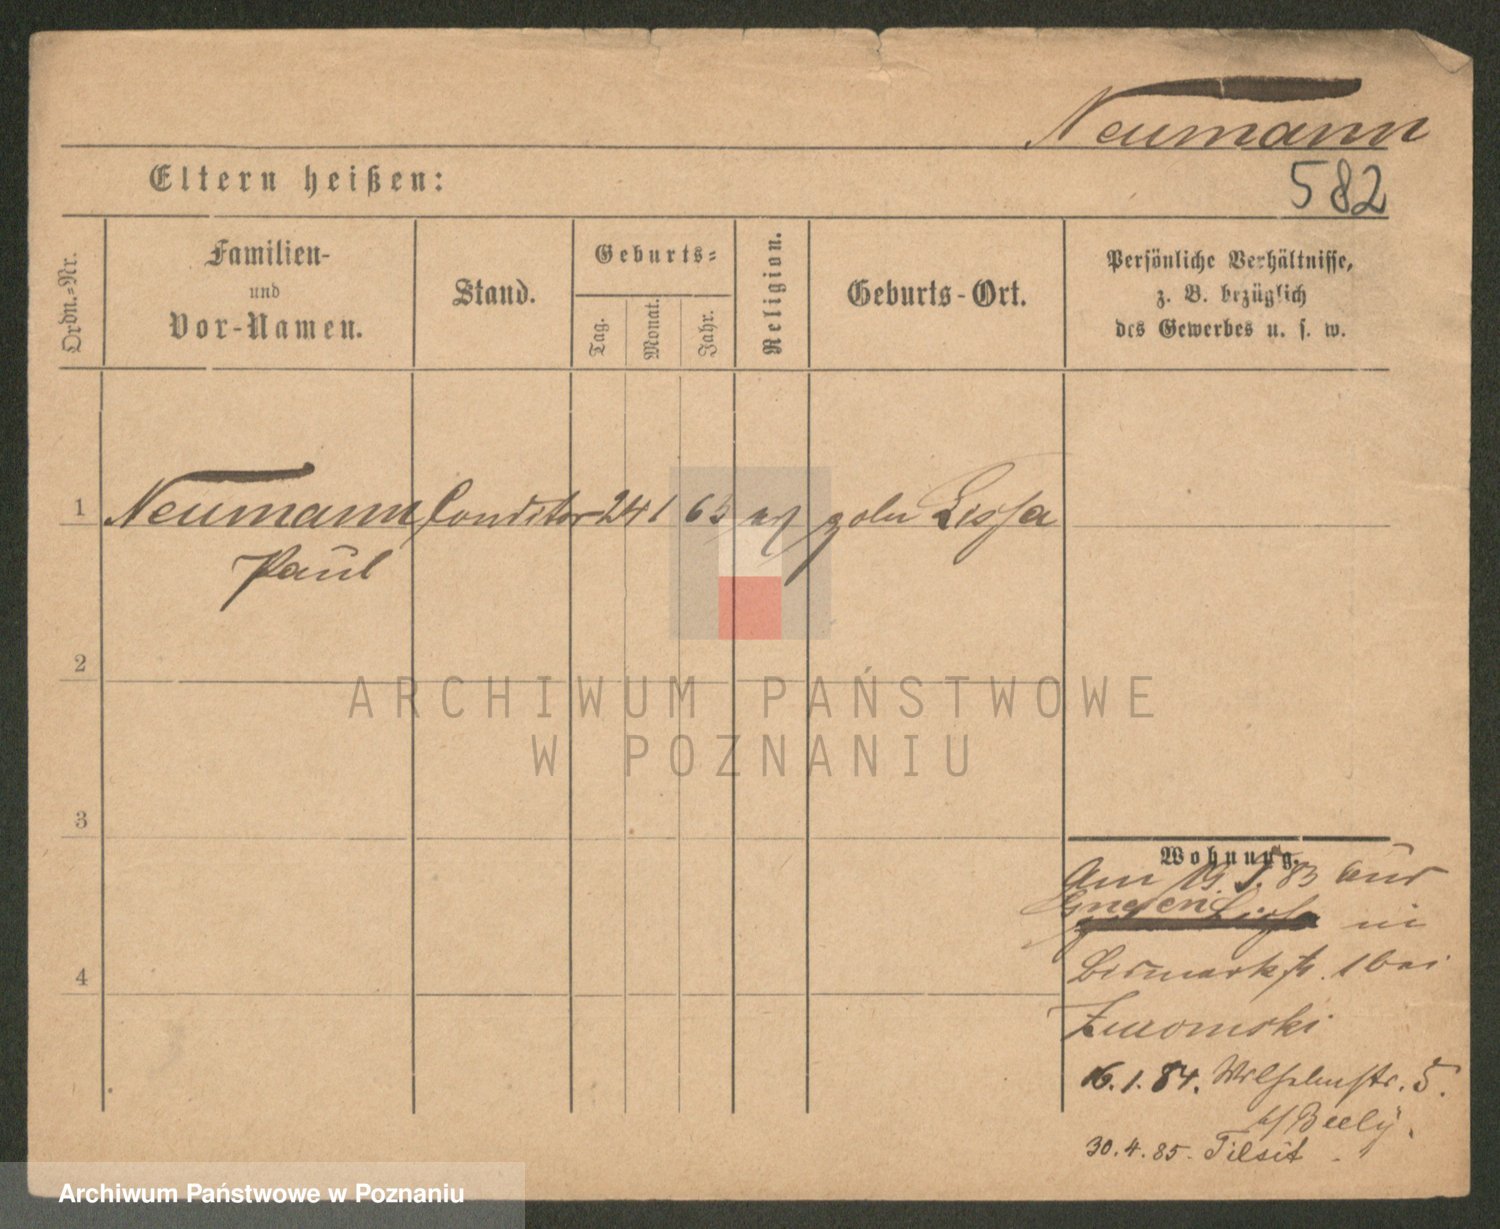 Neumann
582
Eltern heißen:
Ordn.-Nr.
Familien-
und
Vor-Namen.
Stand.
Geburts-
Tag.
Monat.
Jahr.
Religion.
Geburts-Ort.
Persönliche Verhältnisse,
z. B. bezüglich
des Gewerbes u. s. w.
1
Neumann Conditor 24 1 63 Lissa
Paul
2
ARCHIWUM PAŃSTWOWE
W POZNANIU
3
Wohnung.
Am 19. 83 aus
Gnesen in
Bismarkstr. 1 bei
4
16.1.84. Wilhelmstr. 5.
b/ Beely.
30.4.85. Tilsit
Archiwum Państwowe w Poznaniu